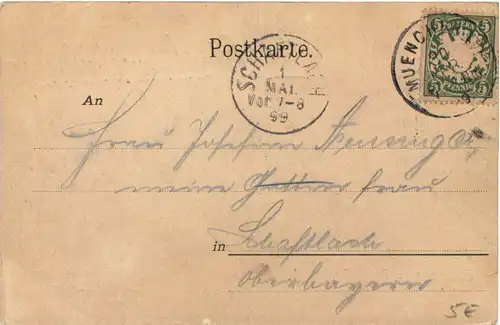 Postkarte.
SCHAFTLACH
1
MAI.
Vor. 7-8
99
MUENCHEN
BAYERN
5 5
PFENNIG
An
Frau Josefine
meine Frau
in Schaftlach
Oberbayern
5€